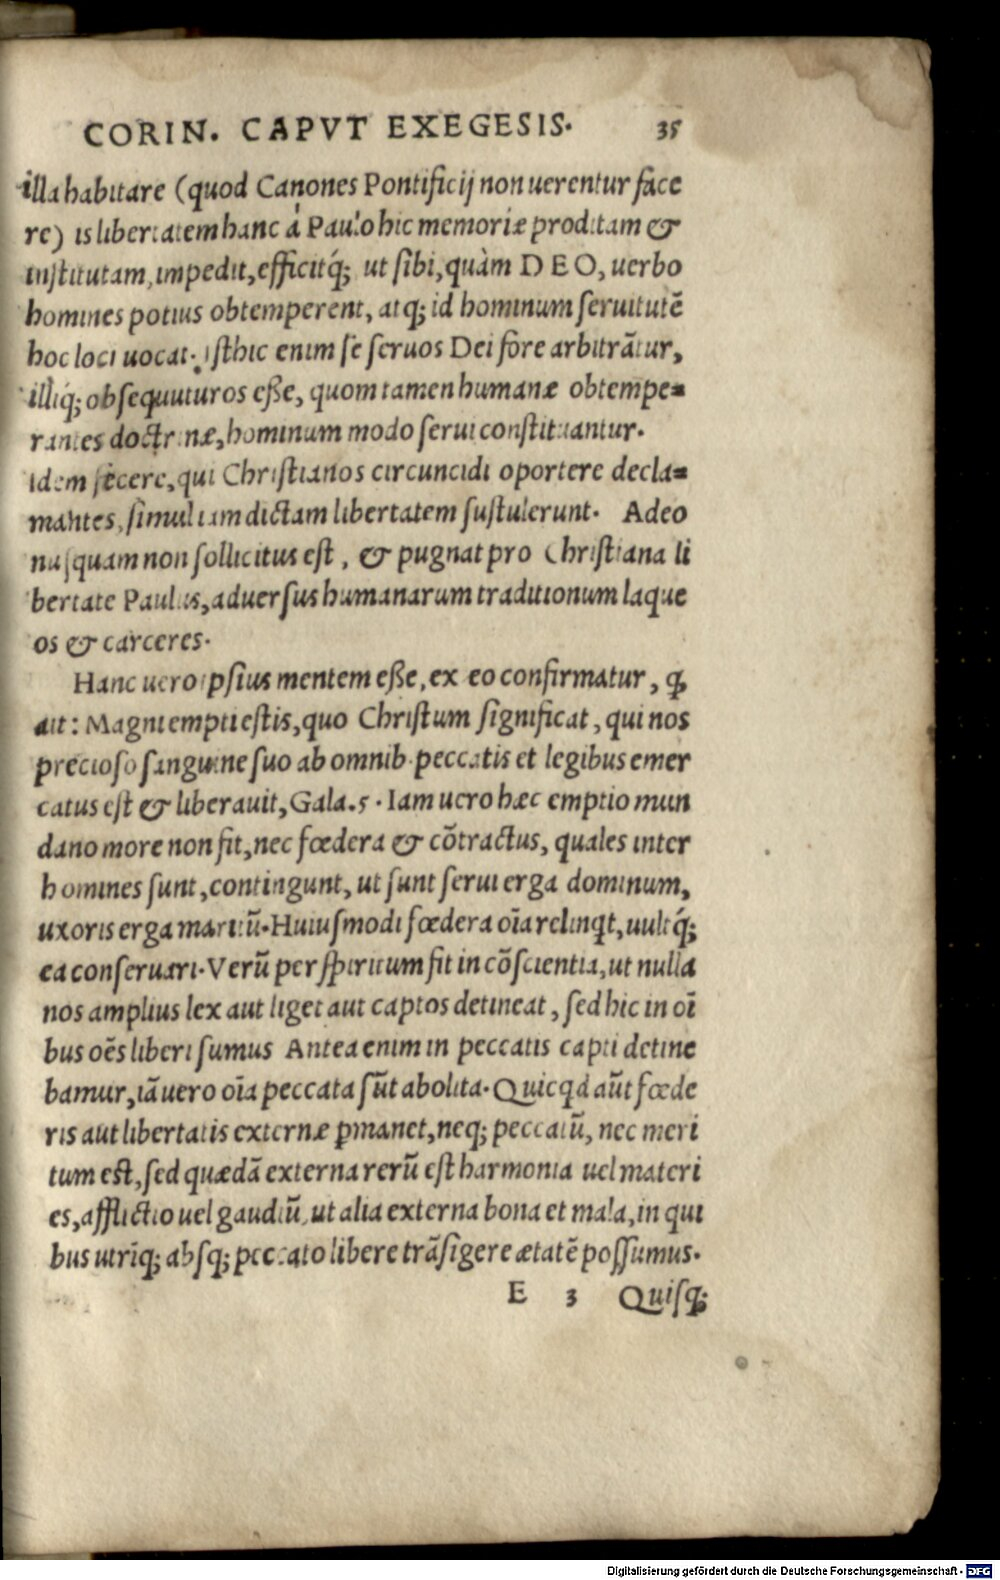 CORIN. CAPVT EXEGESIS. 35
illa habitare (quod Canones Pontificij non uerentur face
re) is libertatem hanc á Paulo hic memoriæ proditam &
institutam, impedit, efficitq́; ut sibi, quàm DEO, uerbo
homines potius obtemperent, atq; id hominum seruitutē
hoc loci uocat. Isthic enim se seruos Dei fore arbitrātur,
illiq́; obsequuturos eße, quom tamen humanæ obtempe=
rantes doctrinæ, hominum modo serui constituantur.
idem fecere, qui Christianos circuncidi oportere decla=
mantes, simul iam dictam libertatem sustulerunt. Adeo
nusquam non sollicitus est, & pugnat pro Christiana li
bertate Paulus, aduersus humanarum traditionum laque
os & carceres.
Hanc uero ipsius mentem eße, ex eo confirmatur, ꝙ
ait: Magni empti estis, quo Christum significat, qui nos
precioso sanguine suo ab omnib. peccatis et legibus emer
catus est & liberauit, Gala.5. Iam uero hæc emptio mun
dano more non fit, nec fœdera & cōtractus, quales inter
homines sunt, contingunt, ut sunt serui erga dominum,
uxoris erga maritū. Huiusmodi fœdera oīa relinqt, uultq́;
ea conseruari. Verū per spiritum fit in cōscientia, ut nulla
nos amplius lex aut liget aut captos detineat, sed hic in oī
bus oēs liberi sumus Antea enim in peccatis capti detine
bamur, iā uero oīa peccata sūt abolita. Quicqd aūt fœde
ris aut libertatis externæ ꝑmanet, neq; peccatū, nec meri
tum est, sed quædā externa rerū est harmonia uel materi
es, afflictio uel gaudiū, ut alia externa bona et mala, in qui
bus utrīq; absq; peccato libere trāsigere ætatē possumus.
E 3 Quisq;
Digitalisierung gefördert durch die Deutsche Forschungsgemeinschaft - DFG